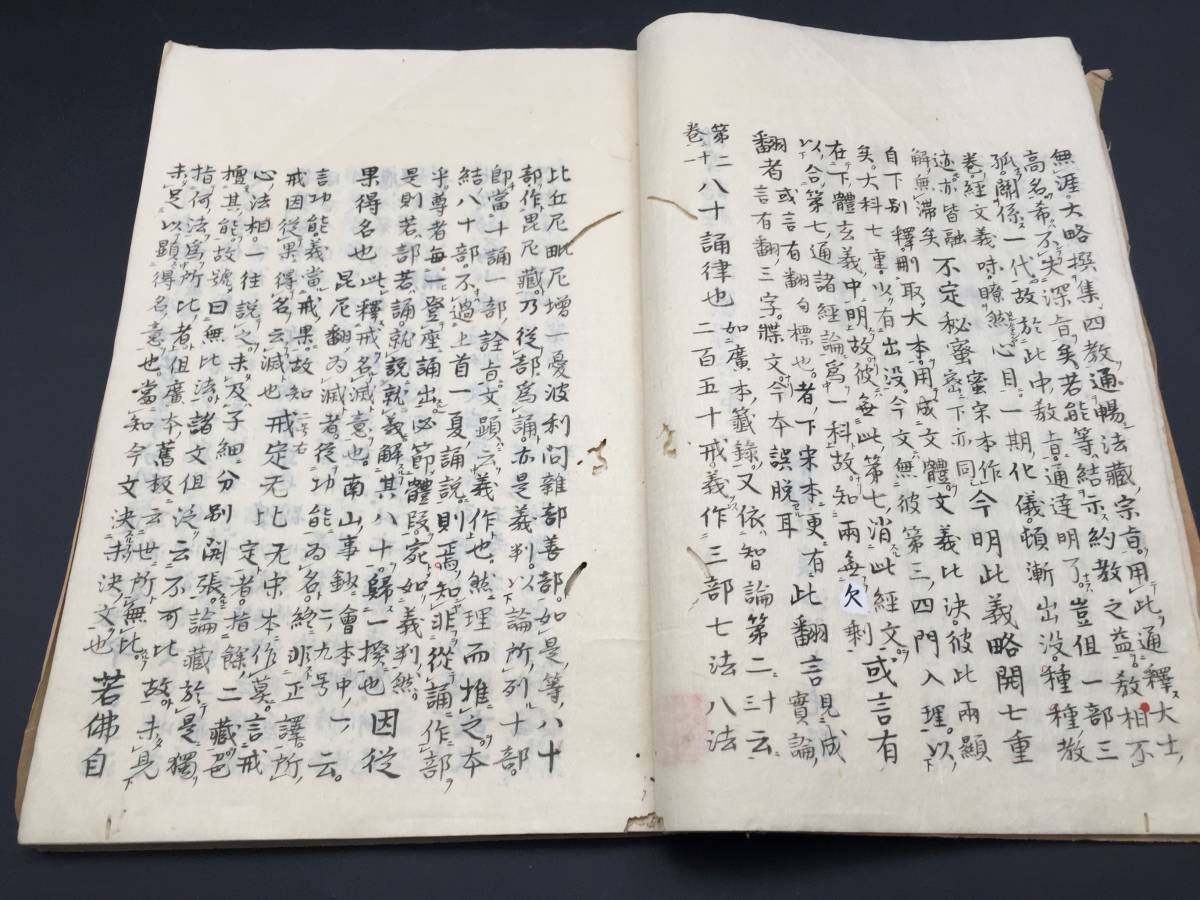 無涯大略撰集四教通暢法藏宗旨用此通釋大士
高名希不失深旨矣若能等結示約教之益教相不
孤關係一代故於此中教旨通達明了豈但一部三
卷經文義味瞭然心目一期化儀頓漸出没種種教
迹亦皆融不定秘蜜蜜宋本作密下亦同今明此義略開七重
解無滯矣
自下別釋刪取大本用成文體文義比決彼此兩顯
矣大科七重少有出没今文無彼第三四門入理以
在下體玄義中明故彼無此第七消此經文或言有
以合第七通諸經論爲一科故知兩無欠剩
者或言有翻句標也者下宋本更有此翻言見成實論
翻者言有翻三字牒文今本誤脱耳
第二八十誦律也如廣本籤錄又依智論第二十三云
卷十一二百五十戒義作三部七法八法
比丘尼毗尼增一憂波利問雜部善部如是等八十
部作毘尼藏乃從部爲誦亦是義判以論所列十部
即當十誦一部詮旨文顕云義作也然理而推之本
結八十部不過上首一夏誦說則焉知非從誦作部
乎尊者每一登座誦出必節體段宛如義判然
是則若部若誦就說就義解其八十歸一揆也因從
果得名也此釋戒名滅意也南山事鈔會本中一
言功能義當戒果故知昆尼翻為滅者從功能為名終非正譯所
戒因從果得名云滅也戒定无比无宋本作莫言戒
心法相一往說之未及子細分別開張論藏於是獨
檀其能故號曰無比法諸文但泛云不可比故未見
指何法爲所比者但廣本舊板云世所無比
未足以顕得名意也當知今文決未決文也若佛自